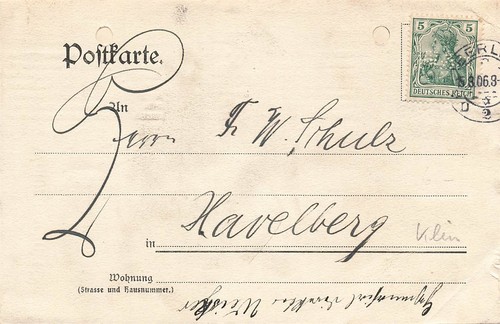 Postkarte.
5 5
DEUTSCHES REICH
BERLIN
5.8.06.8-
2
An
Herrn F. W. Schulz
in Havelberg
Klein
Wohnung
(Strasse und Hausnummer.)